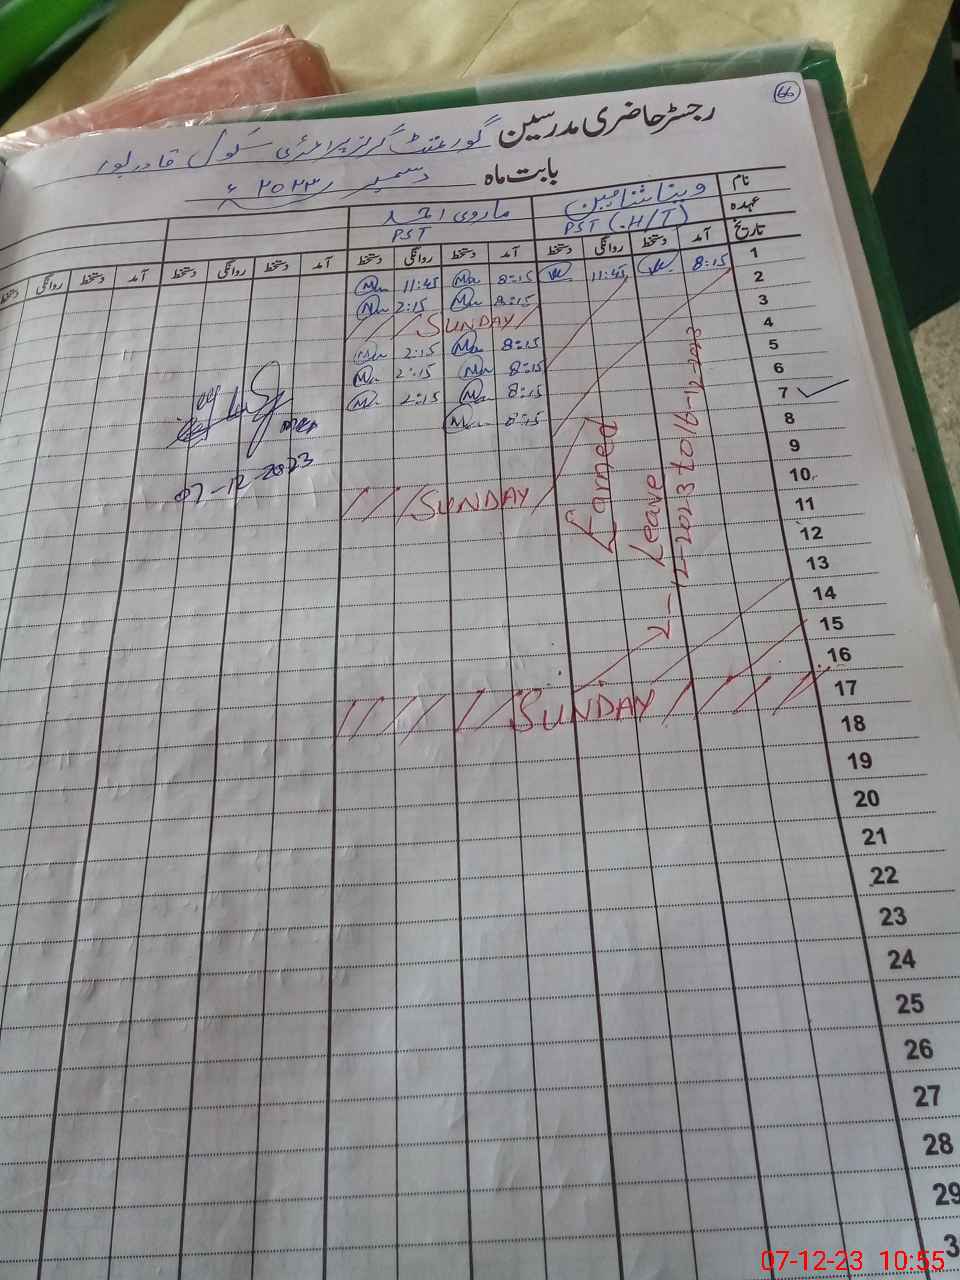 66
رجسٹر حاضری مدرسین گورنمنٹ گرلز پرائمری سکول قادر پور
بابت ماہ دسمبر ۲۰۲۳ ء
نام
عہدہ PST (.H/T) PST
تاریخ آمد دستخط روانگی دستخط آمد دستخط روانگی دستخط آمد دستخط روانگی دستخط آمد دستخط روانگی دستخط
1 8:15 11:45 8:15 11:45
2 8:15 2:15
3 SUNDAY
4 8:15 2:15
5 8:15 2:15
6 8:15 2:15
7 8:15
8
9
10 SUNDAY
11
12
13
14
15
16
17 SUNDAY
18
19
20
21
22
23
24
25
26
27
28
29
3
Earned
Leave
2-12-2023 to 16-12-2023
07-12-2023
07-12-23 10:55